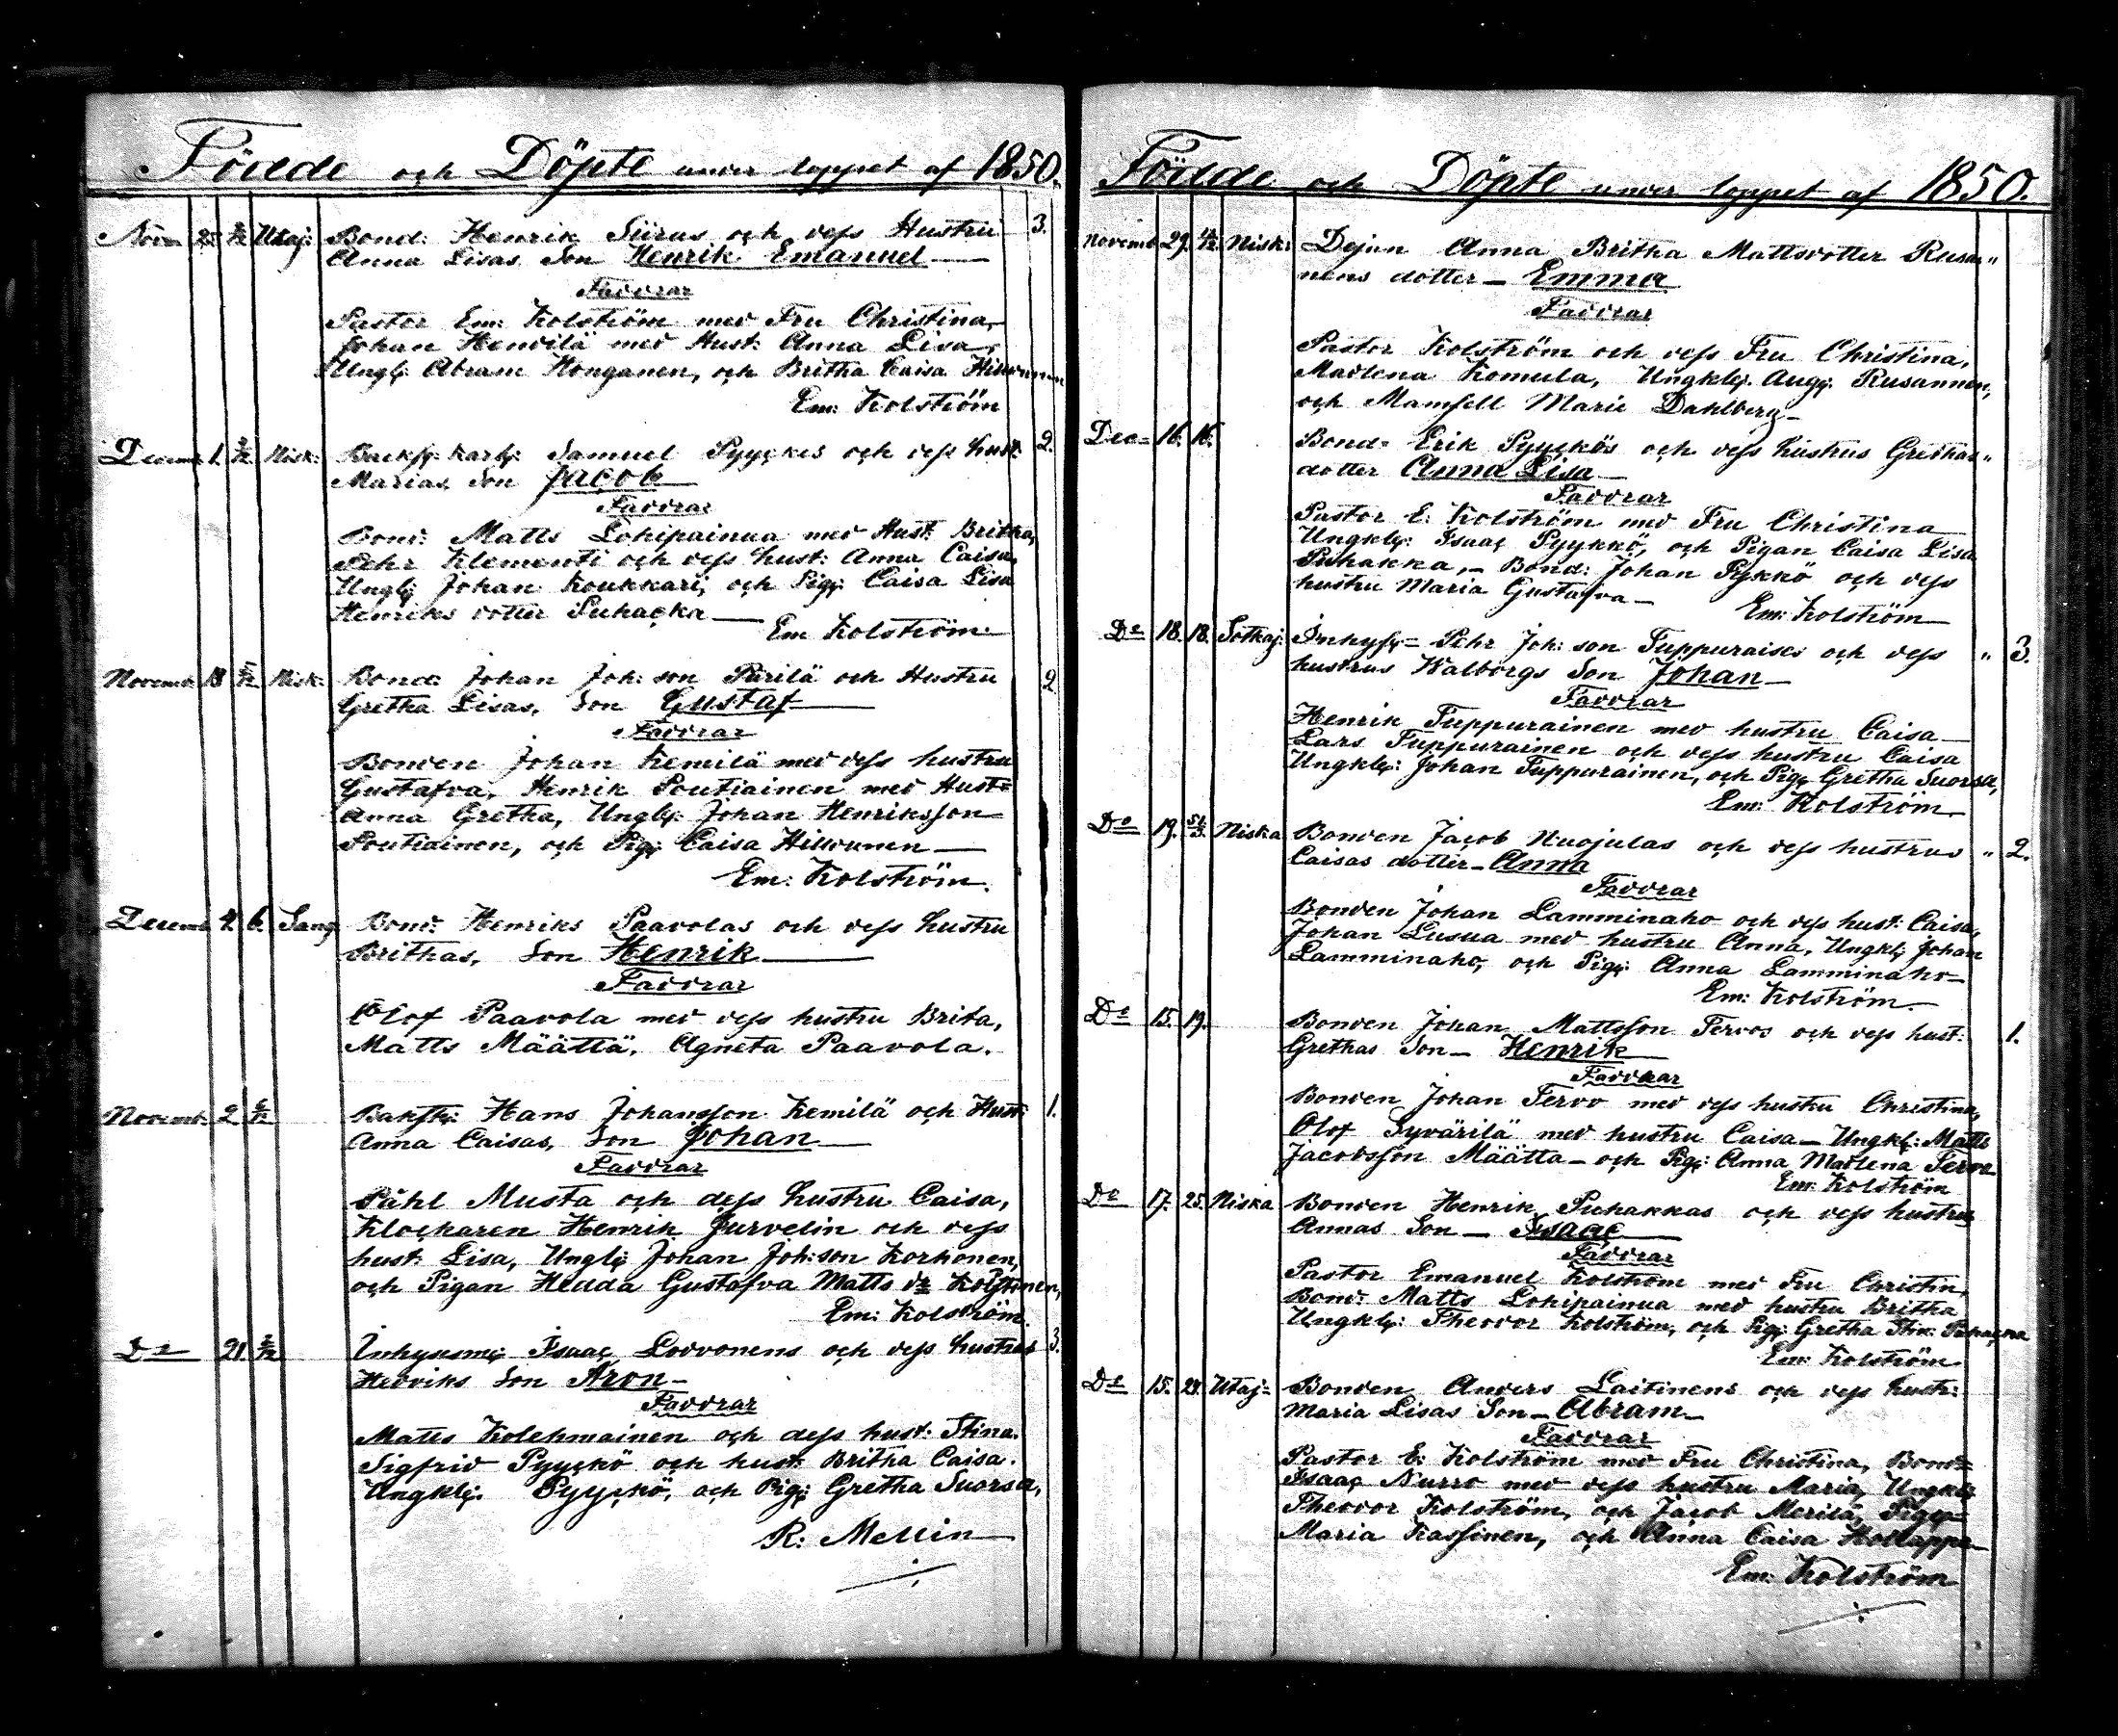 Födde och Döpte under loppet af 1850.
Novem 25 2/12 Utaj: Bond: Henrik Siiras och dess Hustru 3.
Anna Lisas Son Henrik Emanuel
Faddrar
Pastor Em: Kolström med Fru Christina,
Johan Hendilä med Hust: Anna Lisa,
Ungk: Abram Honganen, och Britha Caisa Hilwunen
Em: Kolström
Decemb 1. 3/12 Nisk: Backst: karl: Samuel Pyyckös och dess hust: 2.
Marias Son Jacob
Faddrar
Bond: Matts Lohipainua med Hust: Britha,
Pehr Klementi och dess hust: Anna Caisa,
Ungk: Johan Koukkari, och Pig: Caisa Lisa
Henriks dotter Puhacka
Em Kolström
Novemb. 18 Nisk: Bond: Johan Joh:son Pärilä och Hustru 2
Gretha Lisas, Son Gustaf
Faddrar
Bonden Johan Kemilä med dess hustru
Gustafva, Henrik Poutiainen med Hust:
Anna Gretha, Ungk: Johan Henriksson
Poutiainen, och Pig: Caisa Hilwunen
Em: Kolström.
Decemb 4. 6. Sang Bond: Henriks Paavolas och dess hustru
Brithas, Son Henrik
Faddrar
Olof Paavola med dess hustru Brita,
Matts Määttä. Agneta Paavola.
Novemb. 2 6/12 Bakst: Hans Johansson Kemilä och Hust: 1.
Anna Caisas, Son Johan
Faddrar
Påhl Musta och dess hustru Caisa,
Klockaren Henrik Jurvelin och dess
hust: Lisa, Ungk: Johan Joh:son Korhonen,
och Pigan Hedda Gustafva Matts dr
Em: Kolström.
De 21. 2/12 Inhysesm: Isaac Lovvonens och dess hustrus 3.
Hedviks Son Aron
Faddrar
Matts Kolehmainen och dess hust: Stina.
Sigfrid Pyyckö och hust: Britha Caisa.
Ungkl: Pyyckö, och Pig: Gretha Suorsa,
R: Mellin
Födde och Döpte under loppet af 1850.
Novemb 29. Nisk: Dejan Anna Britha Mattsdotter Rusa„
nens dotter Emma
Faddrar
Pastor Kolström och dess Fru Christina,
Madlena Komula, Ungkl: Aug: Rusannen,
och Mamsell Marie Dahlberg
Dec 16. 16. Bond: Erik Pyyckös och dess hustrus Grethas„
dotter Anna Lisa
Faddrar
Pastor E: Kolström med Fru Christina
Ungkl: Isaac Pyykkö, och Pigan Caisa Lisa
Puhakka, Bond: Johan Pykkö och dess
hustru Maria Gustafva
Em: Kolström
De 18. 18. Sotkaj: Inhys: Pehr Joh: son Tuppuraises och dess „ 3.
hustrus Walborgs Son Johan
Faddrar
Henrik Tuppurainen med hustru Caisa
Lars Tuppurainen och dess hustru Caisa
Ungkl: Johan Tuppurainen, och Pig: Gretha Suorsa,
Em: Kolström
De 19. Niska Bonden Jacob Nuojulas och dess hustrus „ 2.
Caisas dotter Anna
Faddrar
Bonden Johan Lamminaho och dess hust: Caisa,
Johan Lusua med hustru Anna, Ungkl: Johan
Lamminaho, och Pig: Anna Lamminaho
Em: Kolström.
De 15. 19. Bonden Johan Mattsson Tervos och dess hust: 1.
Grethas Son Henrik
Faddrar
Bonden Johan Tervo med dess hustru Christina,
Olof Syvärilä med hustru Caisa Ungkl: Matts
Jacobsson Määtta och Pig: Anna Madlena Tervo
Em: Kolström
De 17. 25. Niska Bonden Henrik Puhakkas och dess hustrus
Annas Son Isaac
Faddrar
Pastor Emanuel Kolström med Fru Christin,
Bond: Matts Lohipainua med hustru Britha
Ungkl: Theodor Kolström, och Pig: Gretha Stin: Puhacka
Em: Kolström
De 15. 28. Utaj: Bonden Anders Laitinens och dess hust:
Maria Lisas Son Abram
Faddrar
Pastor E: Kolström med Fru Christina, Bond:
Isaac Nurro med dess hustru Maria, Ungkl:
Theodor Kolström, och Jacob Merilä, Pig:
Maria Kassinen, och Anna Caisa Holappa
Em: Kolström